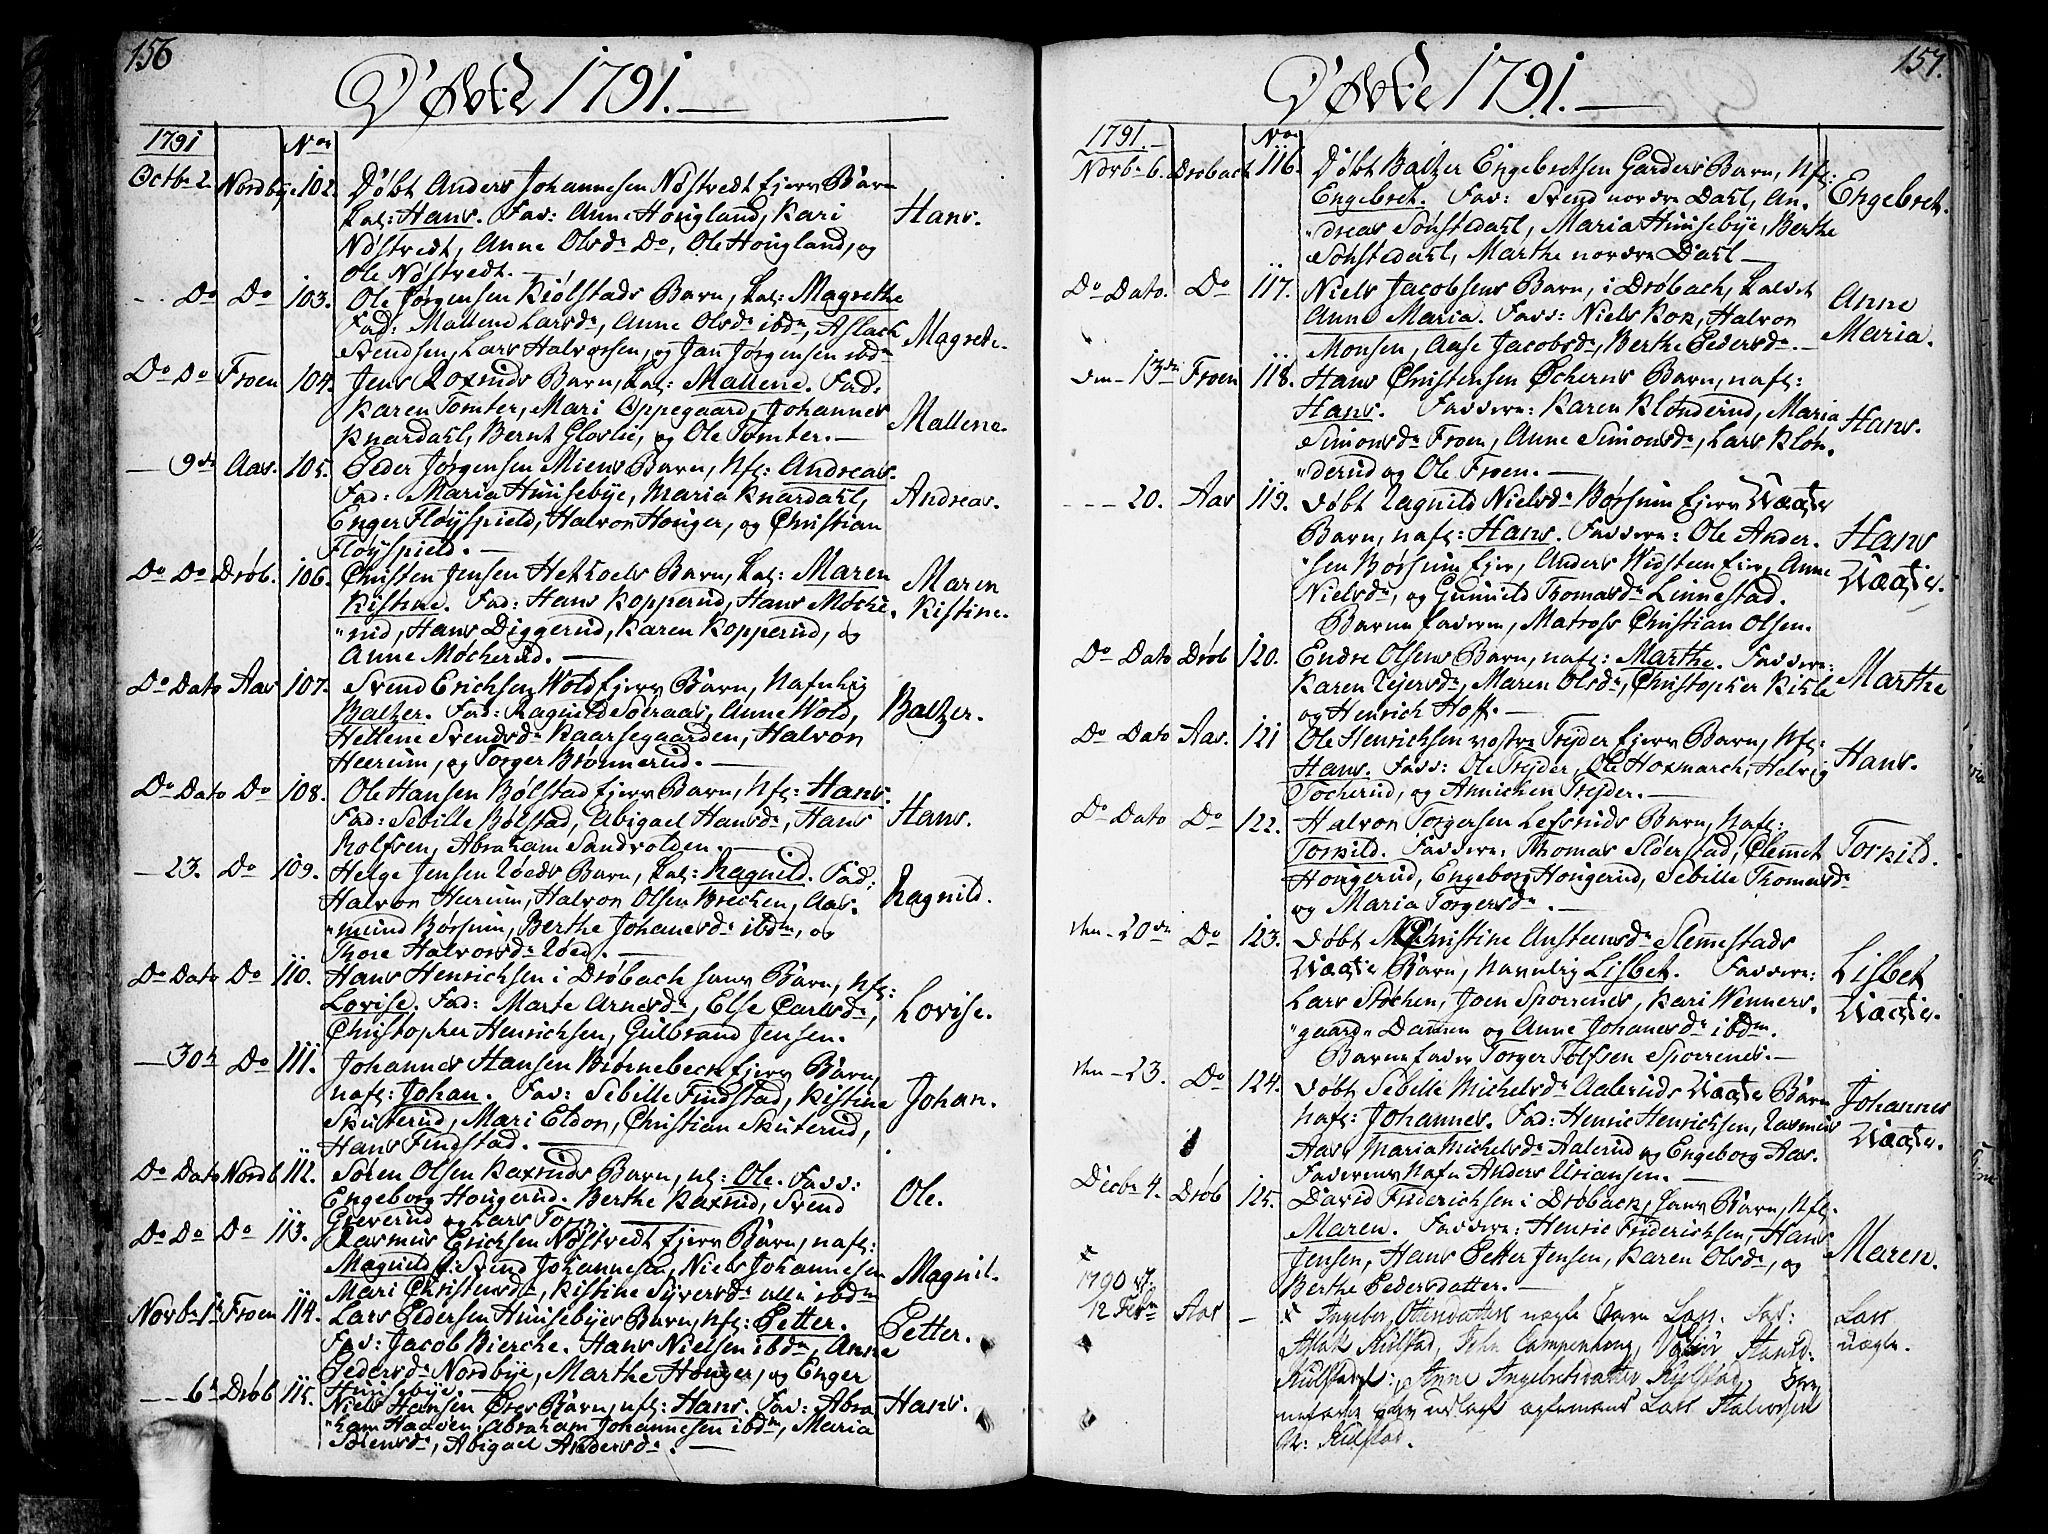 156
Døbte 1791.
1791 Nos
Octbr 2. Nordbye 102. Døbt Anders Johannesen Nøstvedt Ejers Barn
kal: Hans. Fad: Anne Hougland, Kari
Nøstvedt, Anne Olsdr Do, Ole Hougland, og
Ole Nøstvedt. Hans.
Do Do 103. Ole Jørgensen Kiølstads Barn, kal: Magrethe
Fad: Mallene Larsdr, Anne Olsdr ibdm, Aslach
Svendsen, Lars Halvorsen, og Jan Jørgensen ibdm Magrete.
Do Do Froen 104. Jens Barn, kal: Mallene. Fad:
Karen Tomter, Mari Oppegaard, Johannes
Knardahl, Bernt Glorlie, og Ole Tomter. Mallene.
9de Aas. 105. Peder Jørgensen Miens Barn, Nfl: Andreas.
Fad: Maria Huusebye, Maria Knardahl,
Enger Fløyspield, Halvor Houger, og Christian
Fløyspield. Andreas.
Do Do Drøb. 106. Christen Jensen Barn, kal: Maren
Kistine. Fad: Hans Kopperud, Hans Møche
"rud, Hans Diggerud, Karen Kopperud, og
Anne Møcherud. Maren Kistine.
Do Dato Aas 107. Svend Erichsen Wold Ejers Barn, Nafnlig
Baltzer. Fad: Ragnild Søeraas, Anne Wold,
Hellene Svendsdr Kaarsegaarden, Halvor
Heerum, og Torger Brønnerud. Baltzer.
Do Dato Do 108. Ole Hansen Bølstad Ejers Barn, Nfl: Hans.
Fad: Sebille Bølstad, Abigael Hansdr, Hans
Rolfsen, Abraham Sandvolden. Hans.
23. Do 109. Helge Jensen Røeds Barn, kal: Ragnild. Fad:
Halvor Heerum, Halvor Olsen Brechen, Aas
"mund Børsum, Berthe Johanesdr ibdm, og
Thore Halvorsdr Røed. Ragnild.
Do Dato Do 110. Hans Henrichsen i Drøbach hans Barn, Nfl:
Lovise. Fad: Marte Arnesdr, Else Carlsdr,
Christopher Henrichsen, Gulbrand Jensen. Lovise.
30te Do 111. Johannes Hansen Biørnebeck Ejers Barn,
nafl: Johan. Fad: Sebille Findstad, Kistine
Skuterud, Mari Eldor, Christian Skuterud,
Hans Findstad. Johan.
Do Dato Nordb. 112. Søren Olsen Kaxruds Barn, nl: Ole. Fadd:
Engeborg Hougerud. Berthe Kaxrud, Svend
Greverud og Lars Ole.
Do Do Do 113. Rasmus Erichsen Nøstvedt Ejers Barn, nafl:
Magnild f: Svend Johannesen, Niels Johannesen
Mari Christensdr, Kistine Siversdr alle ibdm Magnil.
Novbr 1te Froen 114. Lars Pedersen Huusebyes Barn, Nfl: Petter.
Fad: Jacob Bierche. Hans Nielsen ibdm, Anne
Pedersdr Nordbye, Marthe Houger, og Enger
Huusebye. Petter.
6te Drøb 115. Niels Hansen Barn, nfl: Hans. Fad: Abra
"ham Haaver, Abraham Johannesen ibdm, Maria
Sørensdr, Abigael Andersdr. Hans.
157.
Døbte 1791.
1791. Nos
Novbr 6. Drøbach 116. Døbt Baltzer Engebretsen Garders Barn, Nfl:
Engebret. Fad: Svend nordre Dahl, An-
"dreas Sønstedahl, Maria Huusebye, Berthe
Sønstedahl, Marthe nordre Dahl Engebret.
Do Dato. Do 117. Niels Jacobsens Barn, i Drøbach, kaldet
Anne Maria. Fadd: Niels Kok, Halvor
Monsen, Aase Jacobsdr, Berthe Pedersdr. Anne Maria.
den 13de Froen 118. Hans Christensen Ocherns Barn, nafl:
Hans. Faddere: Karen Klonderud, Maria
Simonsdr Froen, Anne Simonsdr, Lars Klon-
"derud og Ole Froen. Hans.
20. Aas 119. Døbt Ragnild Nielsdr Børsum Ejers Uægte
Barn, nafl: Hans. Faddere: Ole Ander-
"sen Børsum Ejer, Anders Widsteen Ejer, Anne
Nielsdr, og Gunnild Thomasdr Linnestad.
Barne faderen, Matross Christian Olsen. Hans Uægte.
Do Dato Drøb 120. Endre Olsens Barn, nafl: Marthe. Faddere:
Karen Rejersdr, Maren Olsdr, Christopher Kihle
og Henrich Hoff. Marthe
Do Dato Aas. 121 Ole Henrichsen vestre Frejder Ejers Barn, Nfl:
Hans. Fadd: Ole Frejder, Ole Hoxmarch, Helvig
Tocherud, og Annichen Frejder. Hans.
Do Dato Do 122. Halvor Torgersen Lefsruds Barn, Nafl:
Torkild. Faddere: Thomas Sløerstad, Clemet
Hougerud, Engeborg Hougerud, Sebille Thomesdr
og Maria Torgersdr. Torkild.
den 20de Do 123. Døbt Christine Ansteensdr Slemmestads
Uægte Barn, Navnlig Lisbet. Faddere:
Lars Støchen, Joen Sporrenes, Kari Wenners-
"gaard, Dannen og Anne Johanesdr ibdm.
Barne fader Torger Tolfsen Sporrenes. Lisbet Uægte.
den 23. Do 124. Døbt Sebille Michelsdr Aaleruds Uægte Barn
nafl: Johannes. Fad: Henric Henrichsen, Rasmus
Aas, Maria Michelsdr Aalerud og Engeborg Aas.
Faderens Nafn Anders Uriansen. Johannes Uægte.
Decbr 4. Drøb 125. David Friderichsen i Drøback, hans Barn, Nfl:
Maren. Faddere: Henric Friderichsen, Hans
Jensen, Hans Petter Jensen, Karen Olsdr, og
Berthe Pedersdatter. Maren.
1790 d.
12 Febr Aas Ingeber Ottersdatters uægte Barn Lars. Fad:
Aslak Kulstad, John Campenhoug,
Kulstad: Anne Ingebretsdatter Kulstad,
udlagt ægtemand Lars Halvorsen
Kulstad. Lars uægte.